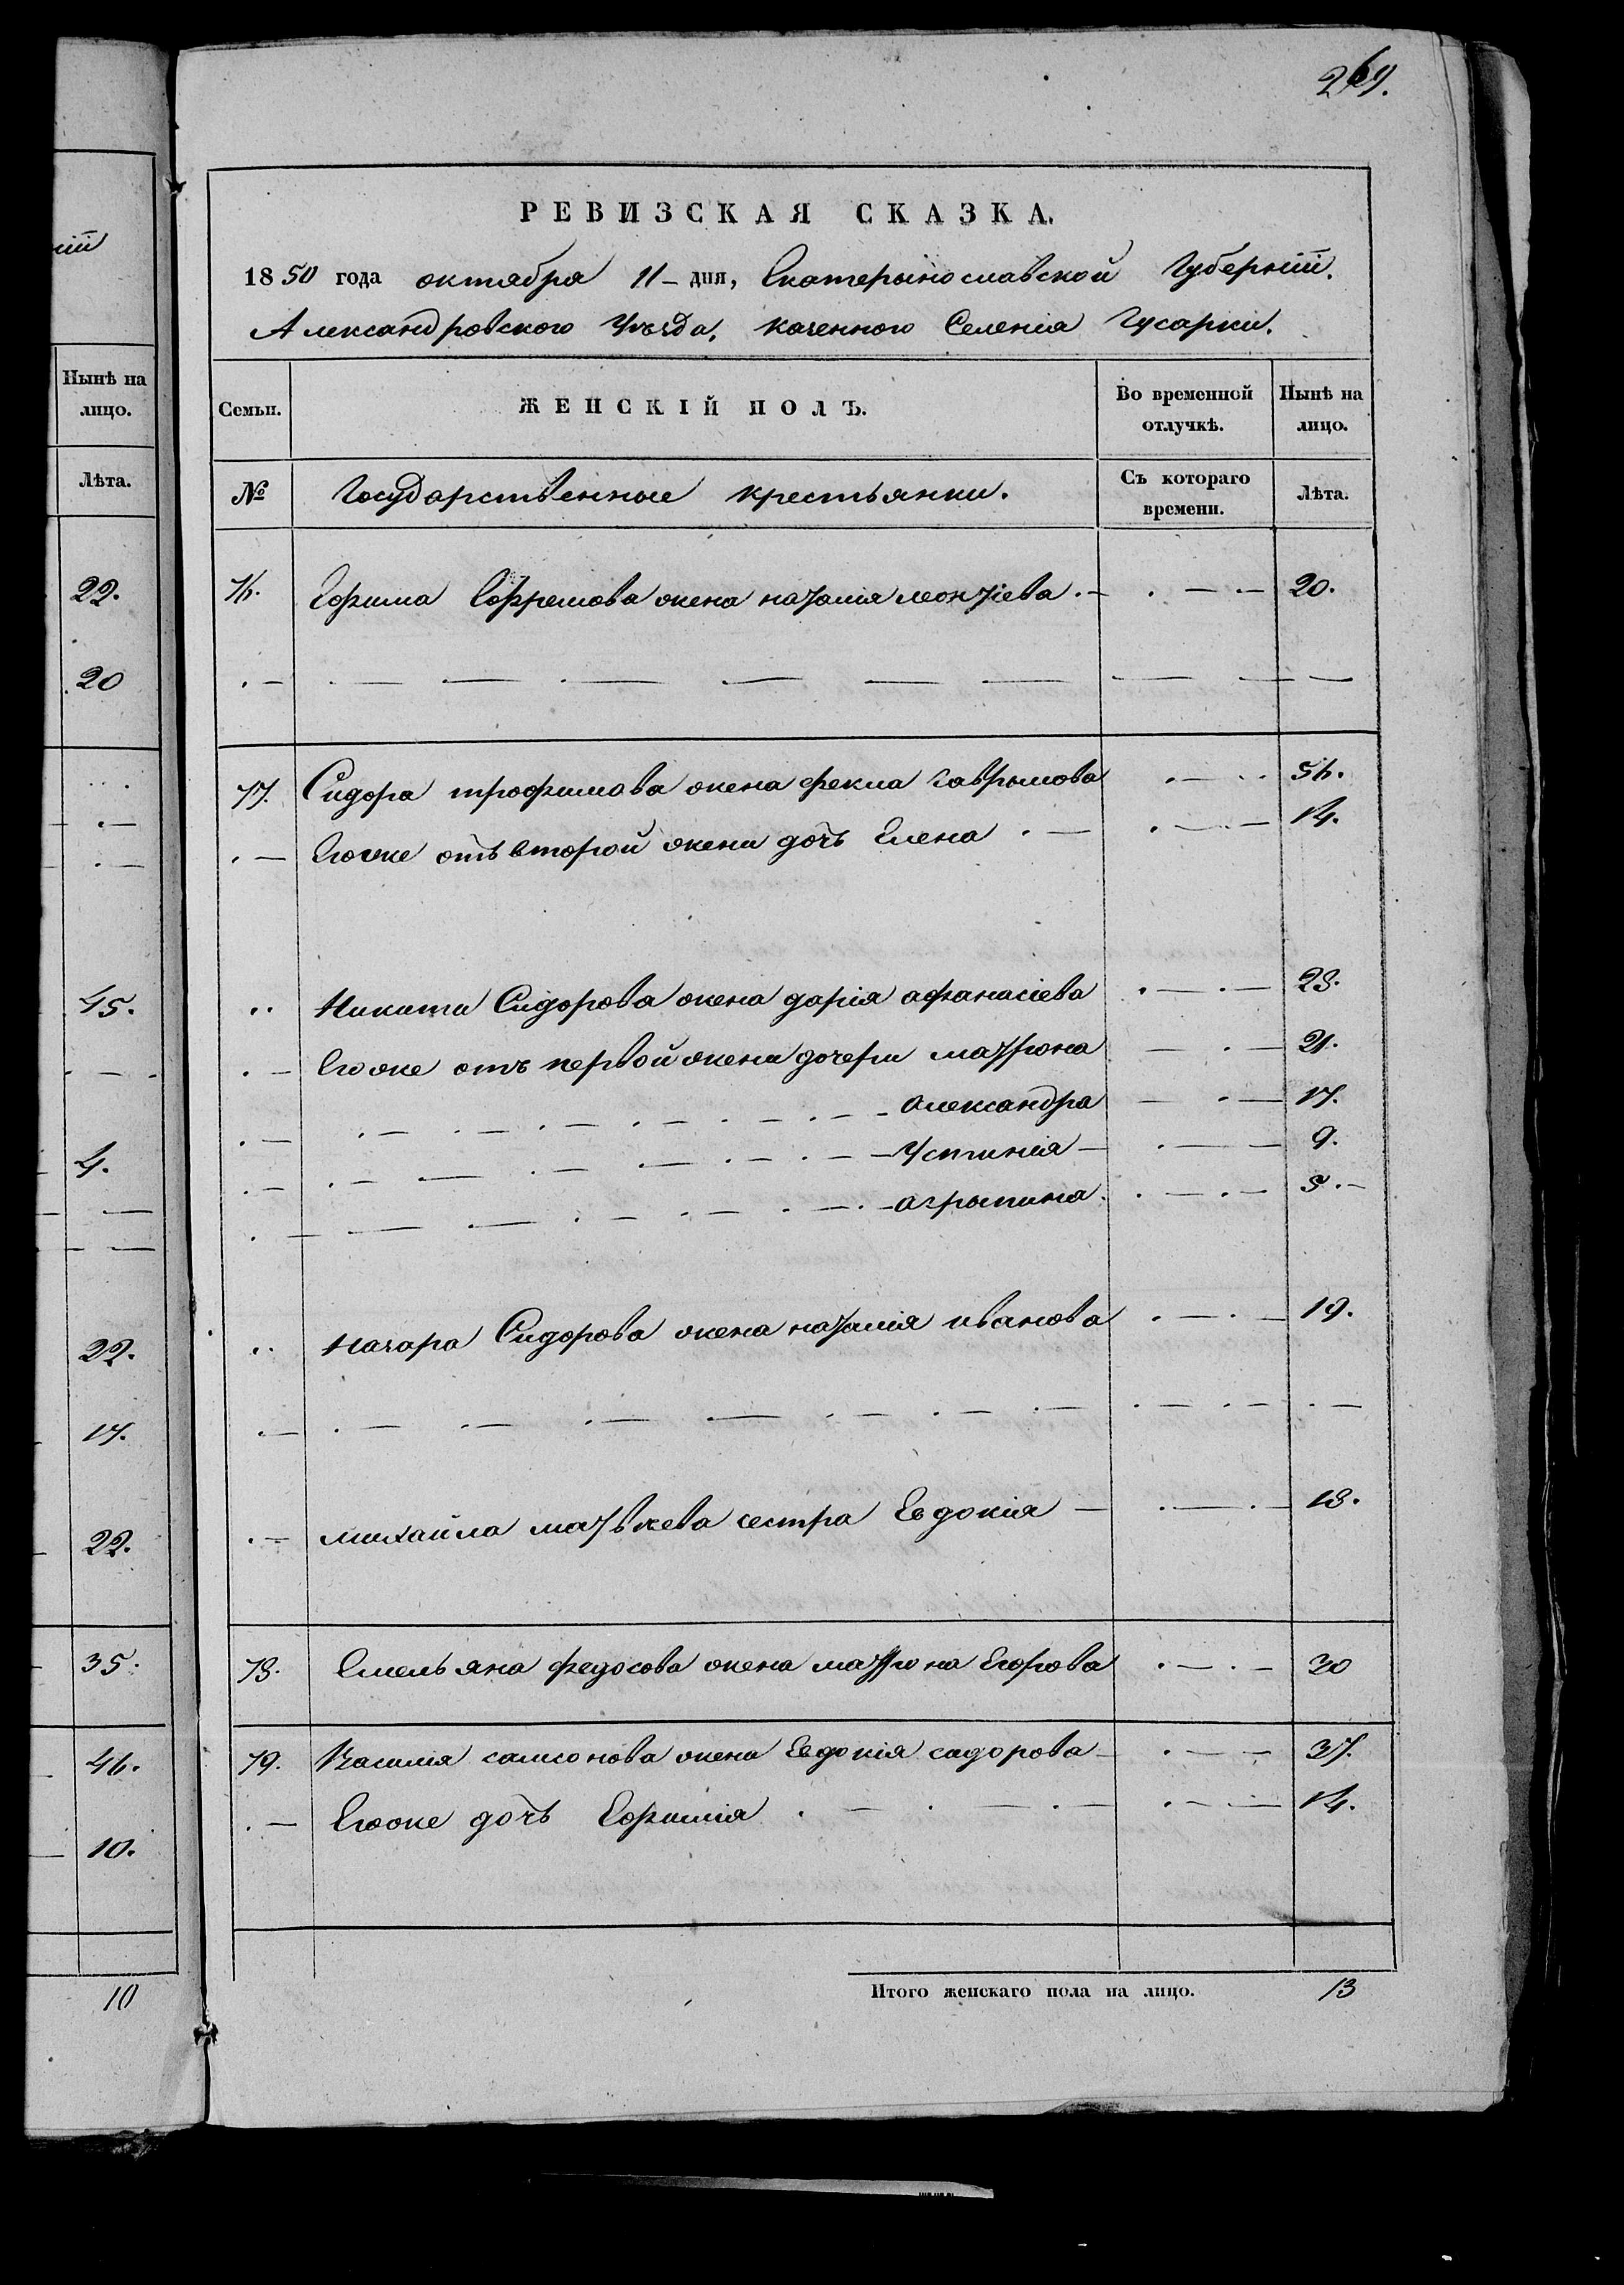 269.
РЕВИЗСКАЯ СКАЗКА.
1850 года октября 11 - дня, Екатерынославской Губерніи.
Александровского Уѣзда, казенного Селенія Гусарки.
ній
Нынѣ на лицо.
Лѣта.
22.
20
45.
4.
22.
17.
22.
35.
46.
10.
10
Семьи. ЖЕНСКІЙ ПОЛЪ. Во временной отлучкѣ. Нынѣ на лицо.
№ Государственные крестьянки. Съ котораго времени. Лѣта.
76. Ефима Еофремова жена наталія леонтіева 20.
77. Сидора трофимова жена фекла гаврылова 56.
Егоже отъ второй жени дочь Елена 14.
Никити Сидорова жена дарія афанасіева 28.
Егоже отъ первой жени дочери матрона 21.
александра 17.
Устинія 9.
агрыпина 5.
Назара Сидорова жена наталія иванова 19.
михайла матвѣева сестра Евдокія 18.
78. Емельяна федосова жена матрона Егорова 30
79. Василія самсонова жена Евдокія сидорова 37.
Егоже дочь Ефимія 14.
Итого женскаго пола на лицо. 13